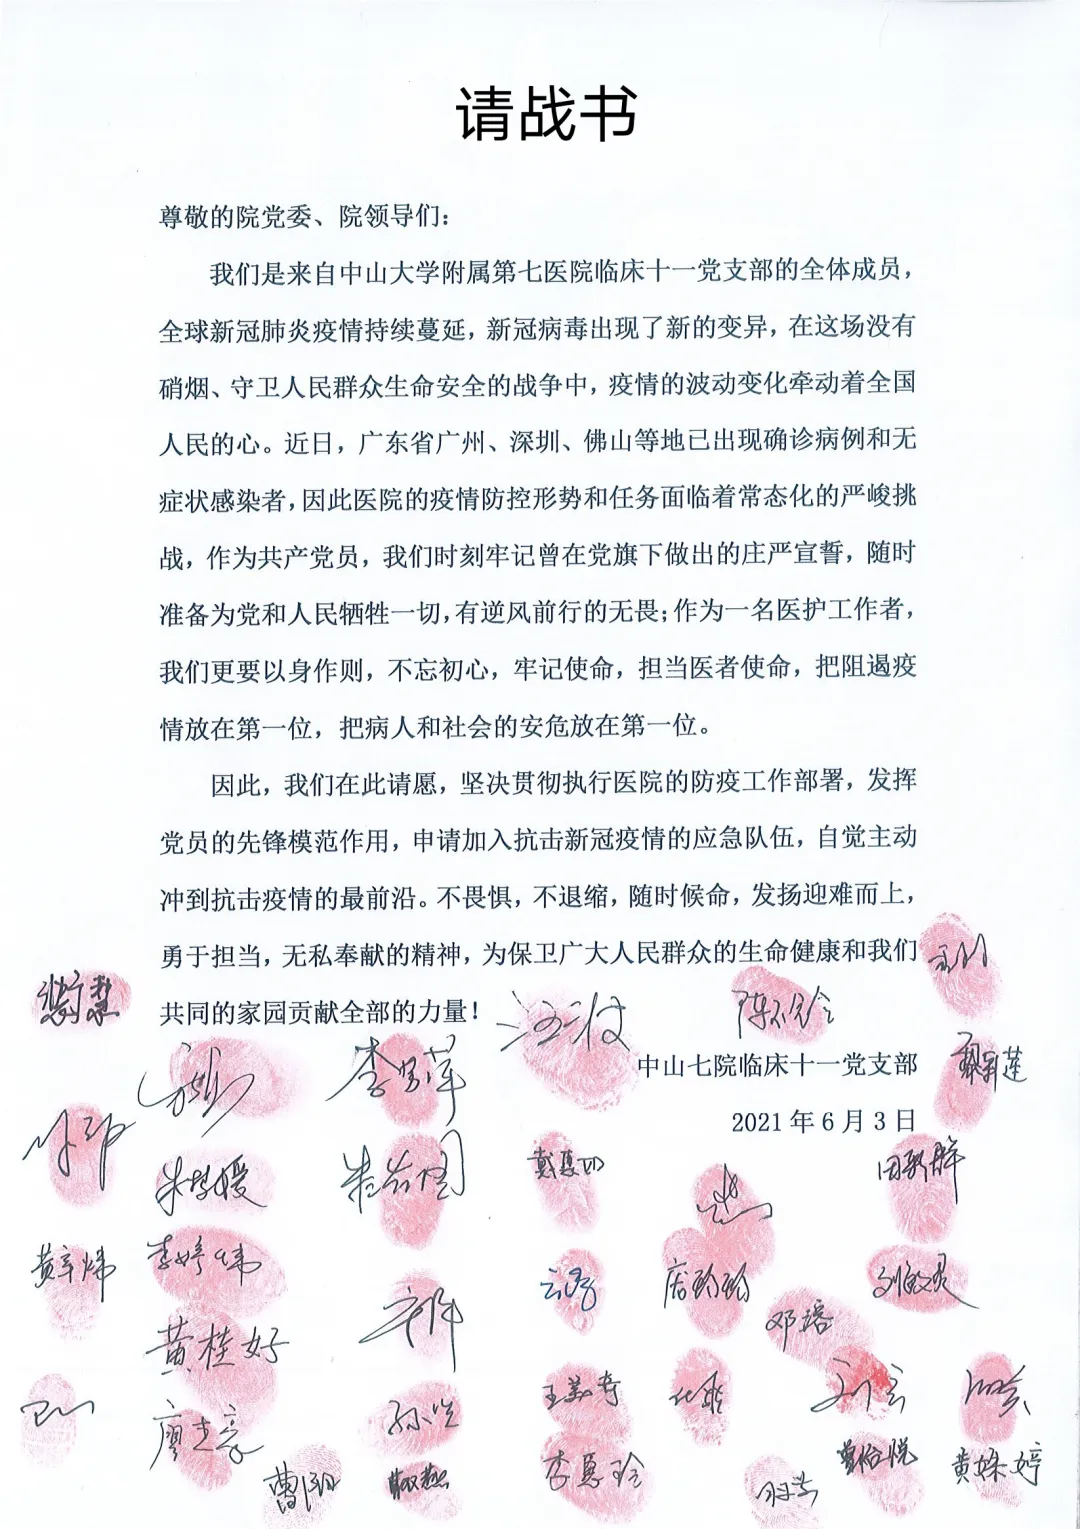 请战书
尊敬的院党委、院领导们：
我们是来自中山大学附属第七医院临床十一党支部的全体成员，
全球新冠肺炎疫情持续蔓延，新冠病毒出现了新的变异，在这场没有
硝烟、守卫人民群众生命安全的战争中，疫情的波动变化牵动着全国
人民的心。近日，广东省广州、深圳、佛山等地已出现确诊病例和无
症状感染者，因此医院的疫情防控形势和任务面临着常态化的严峻挑
战，作为共产党员，我们时刻牢记曾在党旗下做出的庄严宣誓，随时
准备为党和人民牺牲一切，有逆风前行的无畏；作为一名医护工作者，
我们更要以身作则，不忘初心，牢记使命，担当医者使命，把阻遏疫
情放在第一位，把病人和社会的安危放在第一位。
因此，我们在此请愿，坚决贯彻执行医院的防疫工作部署，发挥
党员的先锋模范作用，申请加入抗击新冠疫情的应急队伍，自觉主动
冲到抗击疫情的最前沿。不畏惧，不退缩，随时候命，发扬迎难而上，
勇于担当，无私奉献的精神，为保卫广大人民群众的生命健康和我们
共同的家园贡献全部的力量！
中山七院临床十一党支部
2021 年 6 月 3 日
李婷伟
黄桂好
邓瑢
李惠玲
黄姝婷